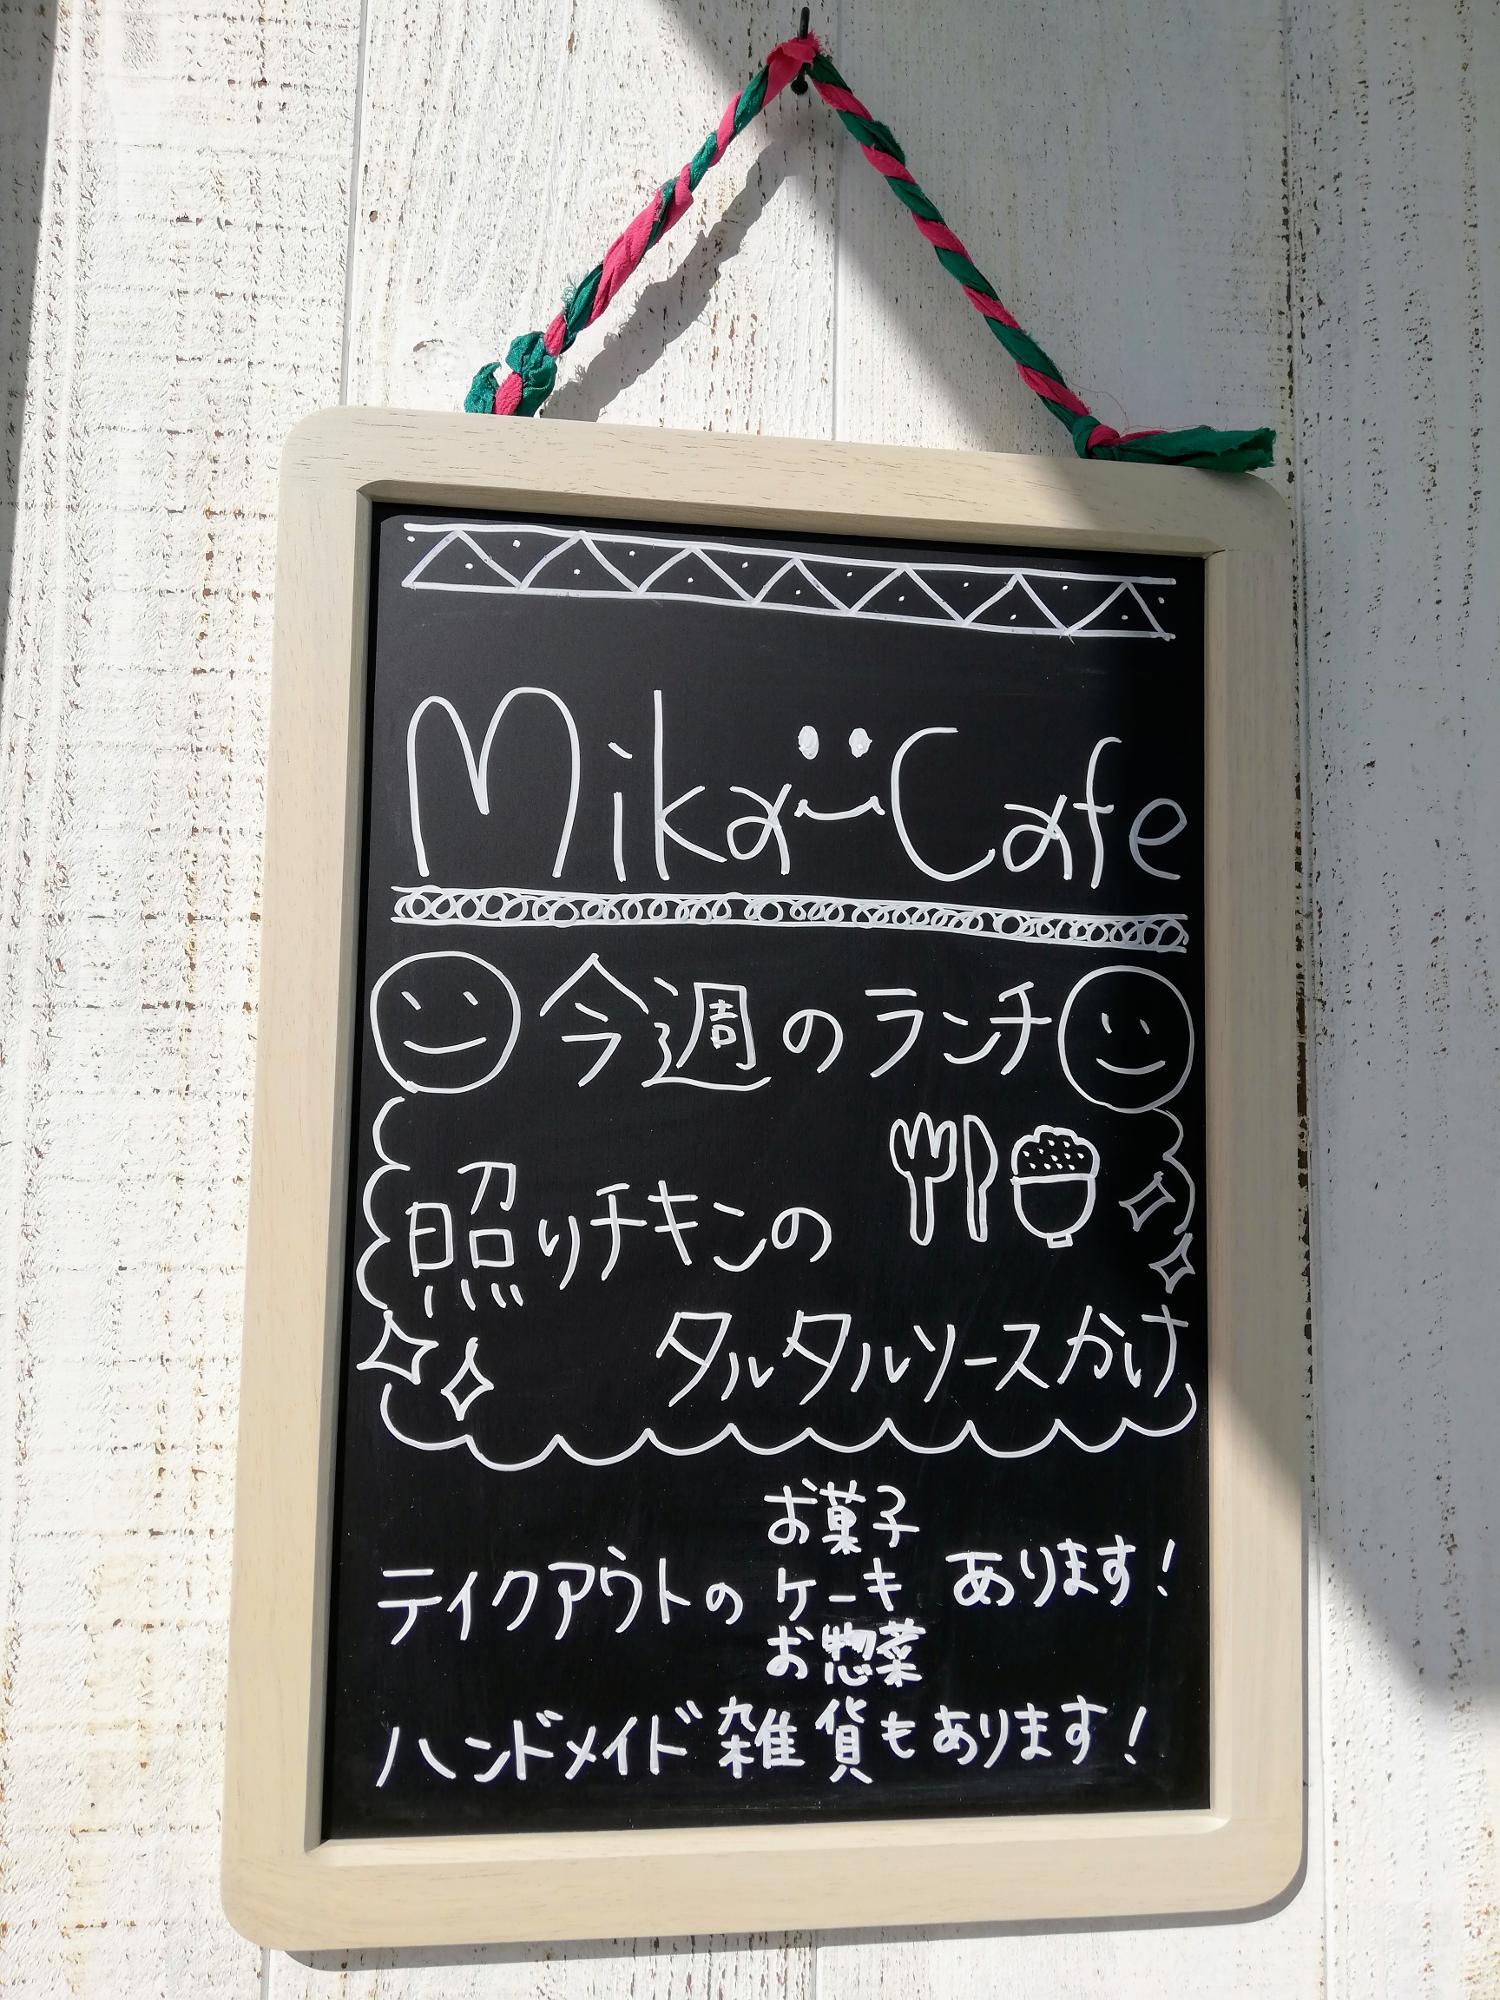 Mika Cafe
今週のランチ
照りチキンの
タルタルソースかけ
お菓子
テイクアウトの ケーキ あります!
お惣菜
ハンドメイド雑貨もあります!